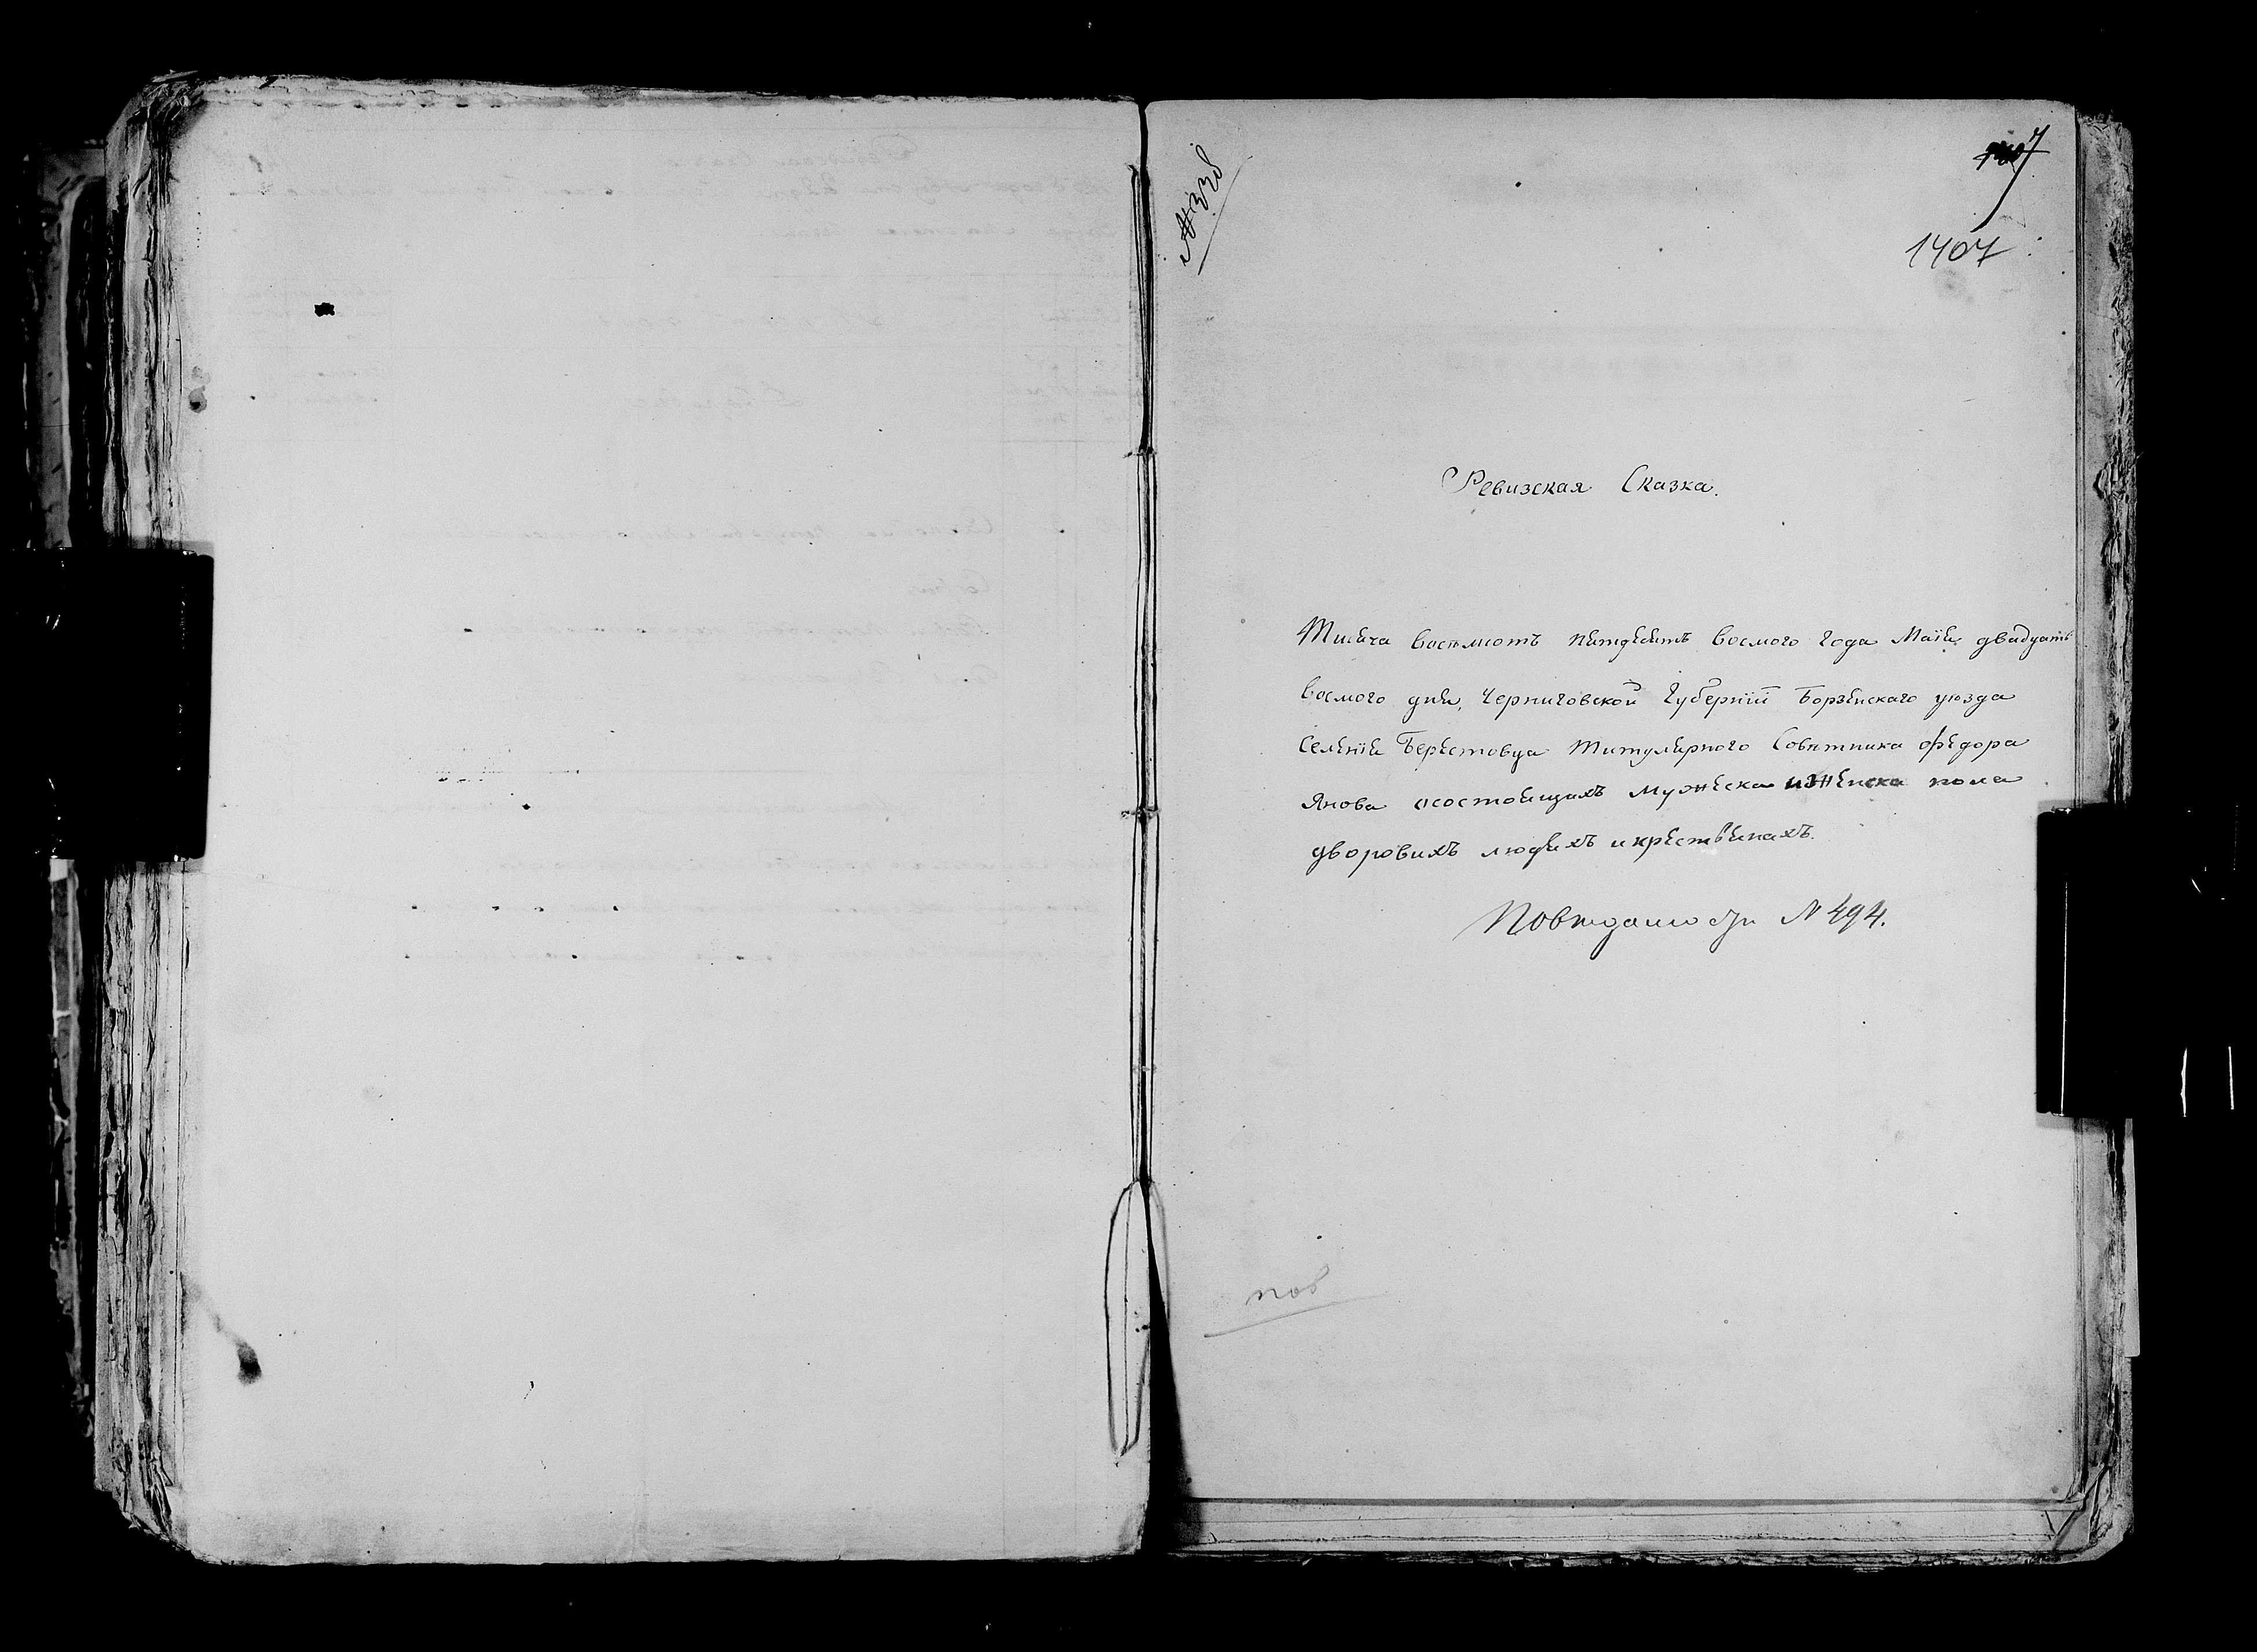 № 338
1407
Ревизская Сказка.
Тисяча восьмсотъ пятдесятъ восмого года Маія двадцать
восмого дня, Черниговской Губерніи Борзенскаго уюзда
Селенія Берестовца Титулярного Совѣтника Федора
Янова осостоящихъ мужеска иженска пола
дворовихъ людяхъ икрестьянахъ.
Повѣдомости № 494.
пов